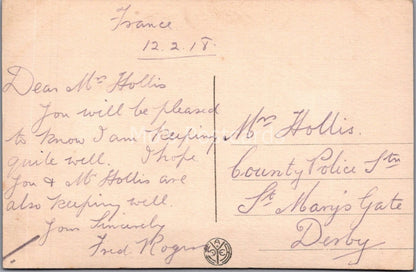 France
12.2.18.
Dear Mrs Hollis
You will be pleased
to know I am keeping
quite well. I hope
you & Mr Hollis are
also keeping well.
Yours Sincerely
Fred Rogers
Mrs Hollis.
County Police Stn
St Mary's Gate
Derby